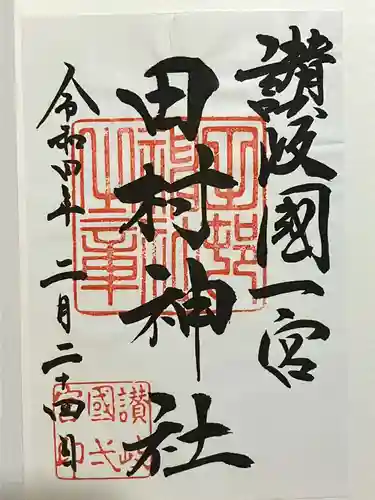 讃岐國一宮
田村神社
令和四年二月二十四日
田村神社之章